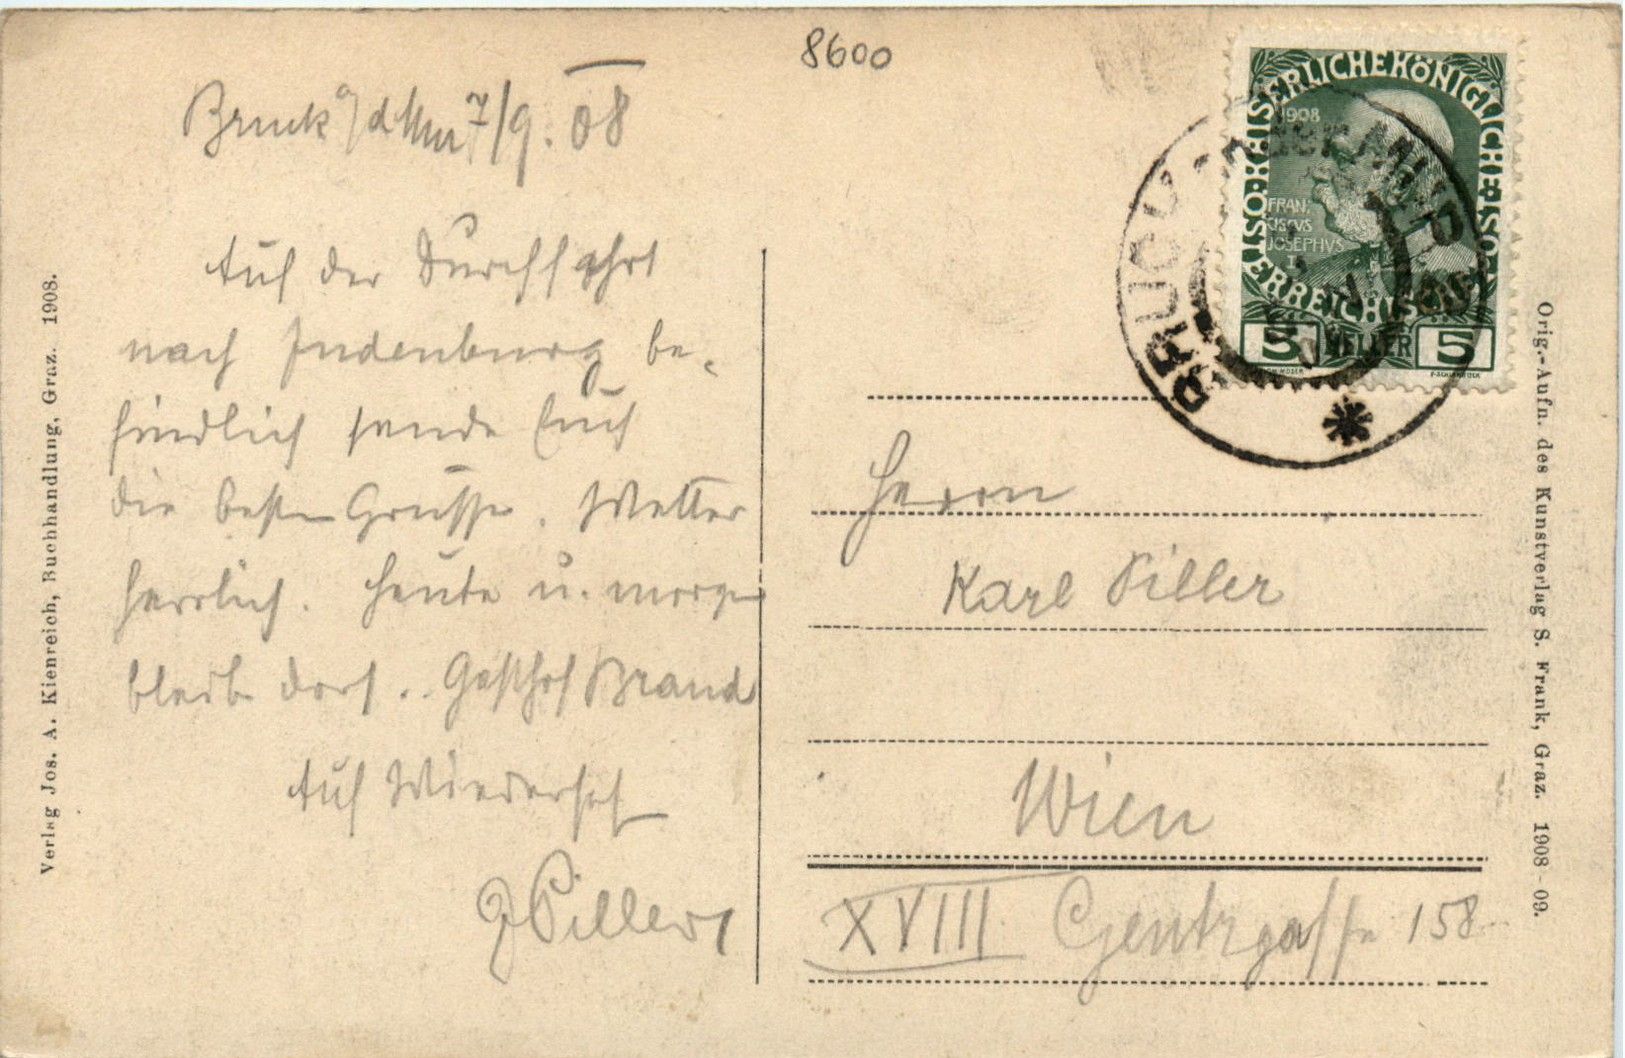 8600
Bruck a/d Mur 7/9. 08
Auf der Durchfahrt
nach Judenburg be-
findlich sende Euch
die besten Grüsse. Wetter
herrlich. Heute u. morgen
bleibe dort. Gasthof Brand
Auf Wiederseh
Piller
Verlag Jos. A. Kienreich, Buchhandlung, Graz. 1908.
KAISERLICHEKÖNIGLICHE
ÖSTERREICHISCHE
1908
FRAN
CISCVS
JOSEPHVS
I
5 HELLER 5
BRUCK an der MUR
Herrn
Karl Piller
Wien
XVIII Gentzgasse 158
Orig.-Aufn. des Kunstverlag S. Frank, Graz. 1908-09.